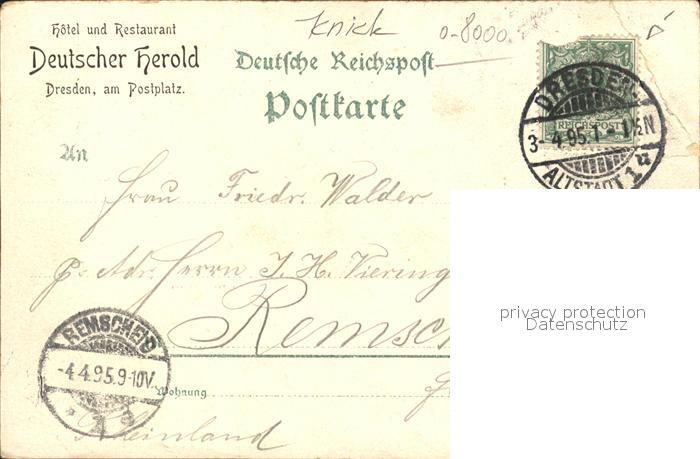 Hôtel und Restaurant
Deutscher Herold
Dresden, am Postplatz.
Knick
0-8000
Deutsche Reichspost
Postkarte
REICHSPOST
DRESDEN-
3-4 95.1-1½N
ALTSTADT 1u
An
Frau Friedr. Walder
p. Adr. Herrn J. H. Viering
Remsch
privacy protection
Datenschutz
REMSCHEID
-4.4.95.9-10V.
Wohnung
Rheinland